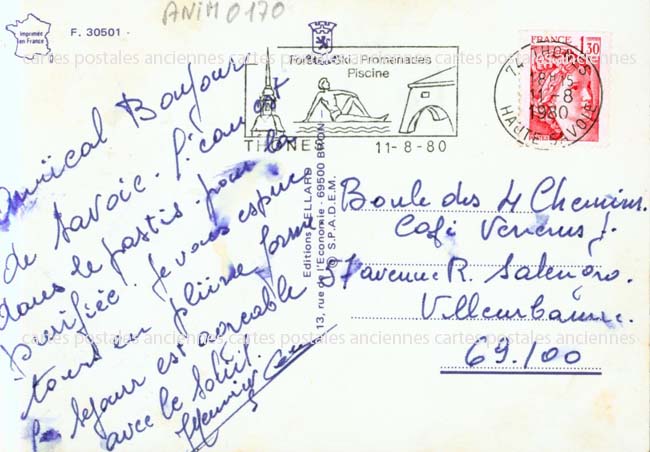 ANIM 0170
Imprimée
en France
F. 30501 -
Forêts - Ski - Promenades
Piscine
THONES 11-8-80
FRANCE
1,30
74 THONES
18H15
11-8
1980
HAUTE-SAVOIE
cartes postales anciennes cartes postales anciennes cartes postales anciennes
Amical Bonjour
de Savoie. l'eau est
dans le pastis. pour la
purifiée. Je vous espère
tous en pleine forme
le séjour est agréable
avec le soleil.
Editions CELLARD
13, rue de l'Economie - 69500 BRON
© S.P.A.D.E.M.
Boule des 4 Chemins.
Café
57 avenue R. Salengro.
Villeurbanne.
69.100
cartes postales anciennes cartes postales anciennes cartes postales anciennes